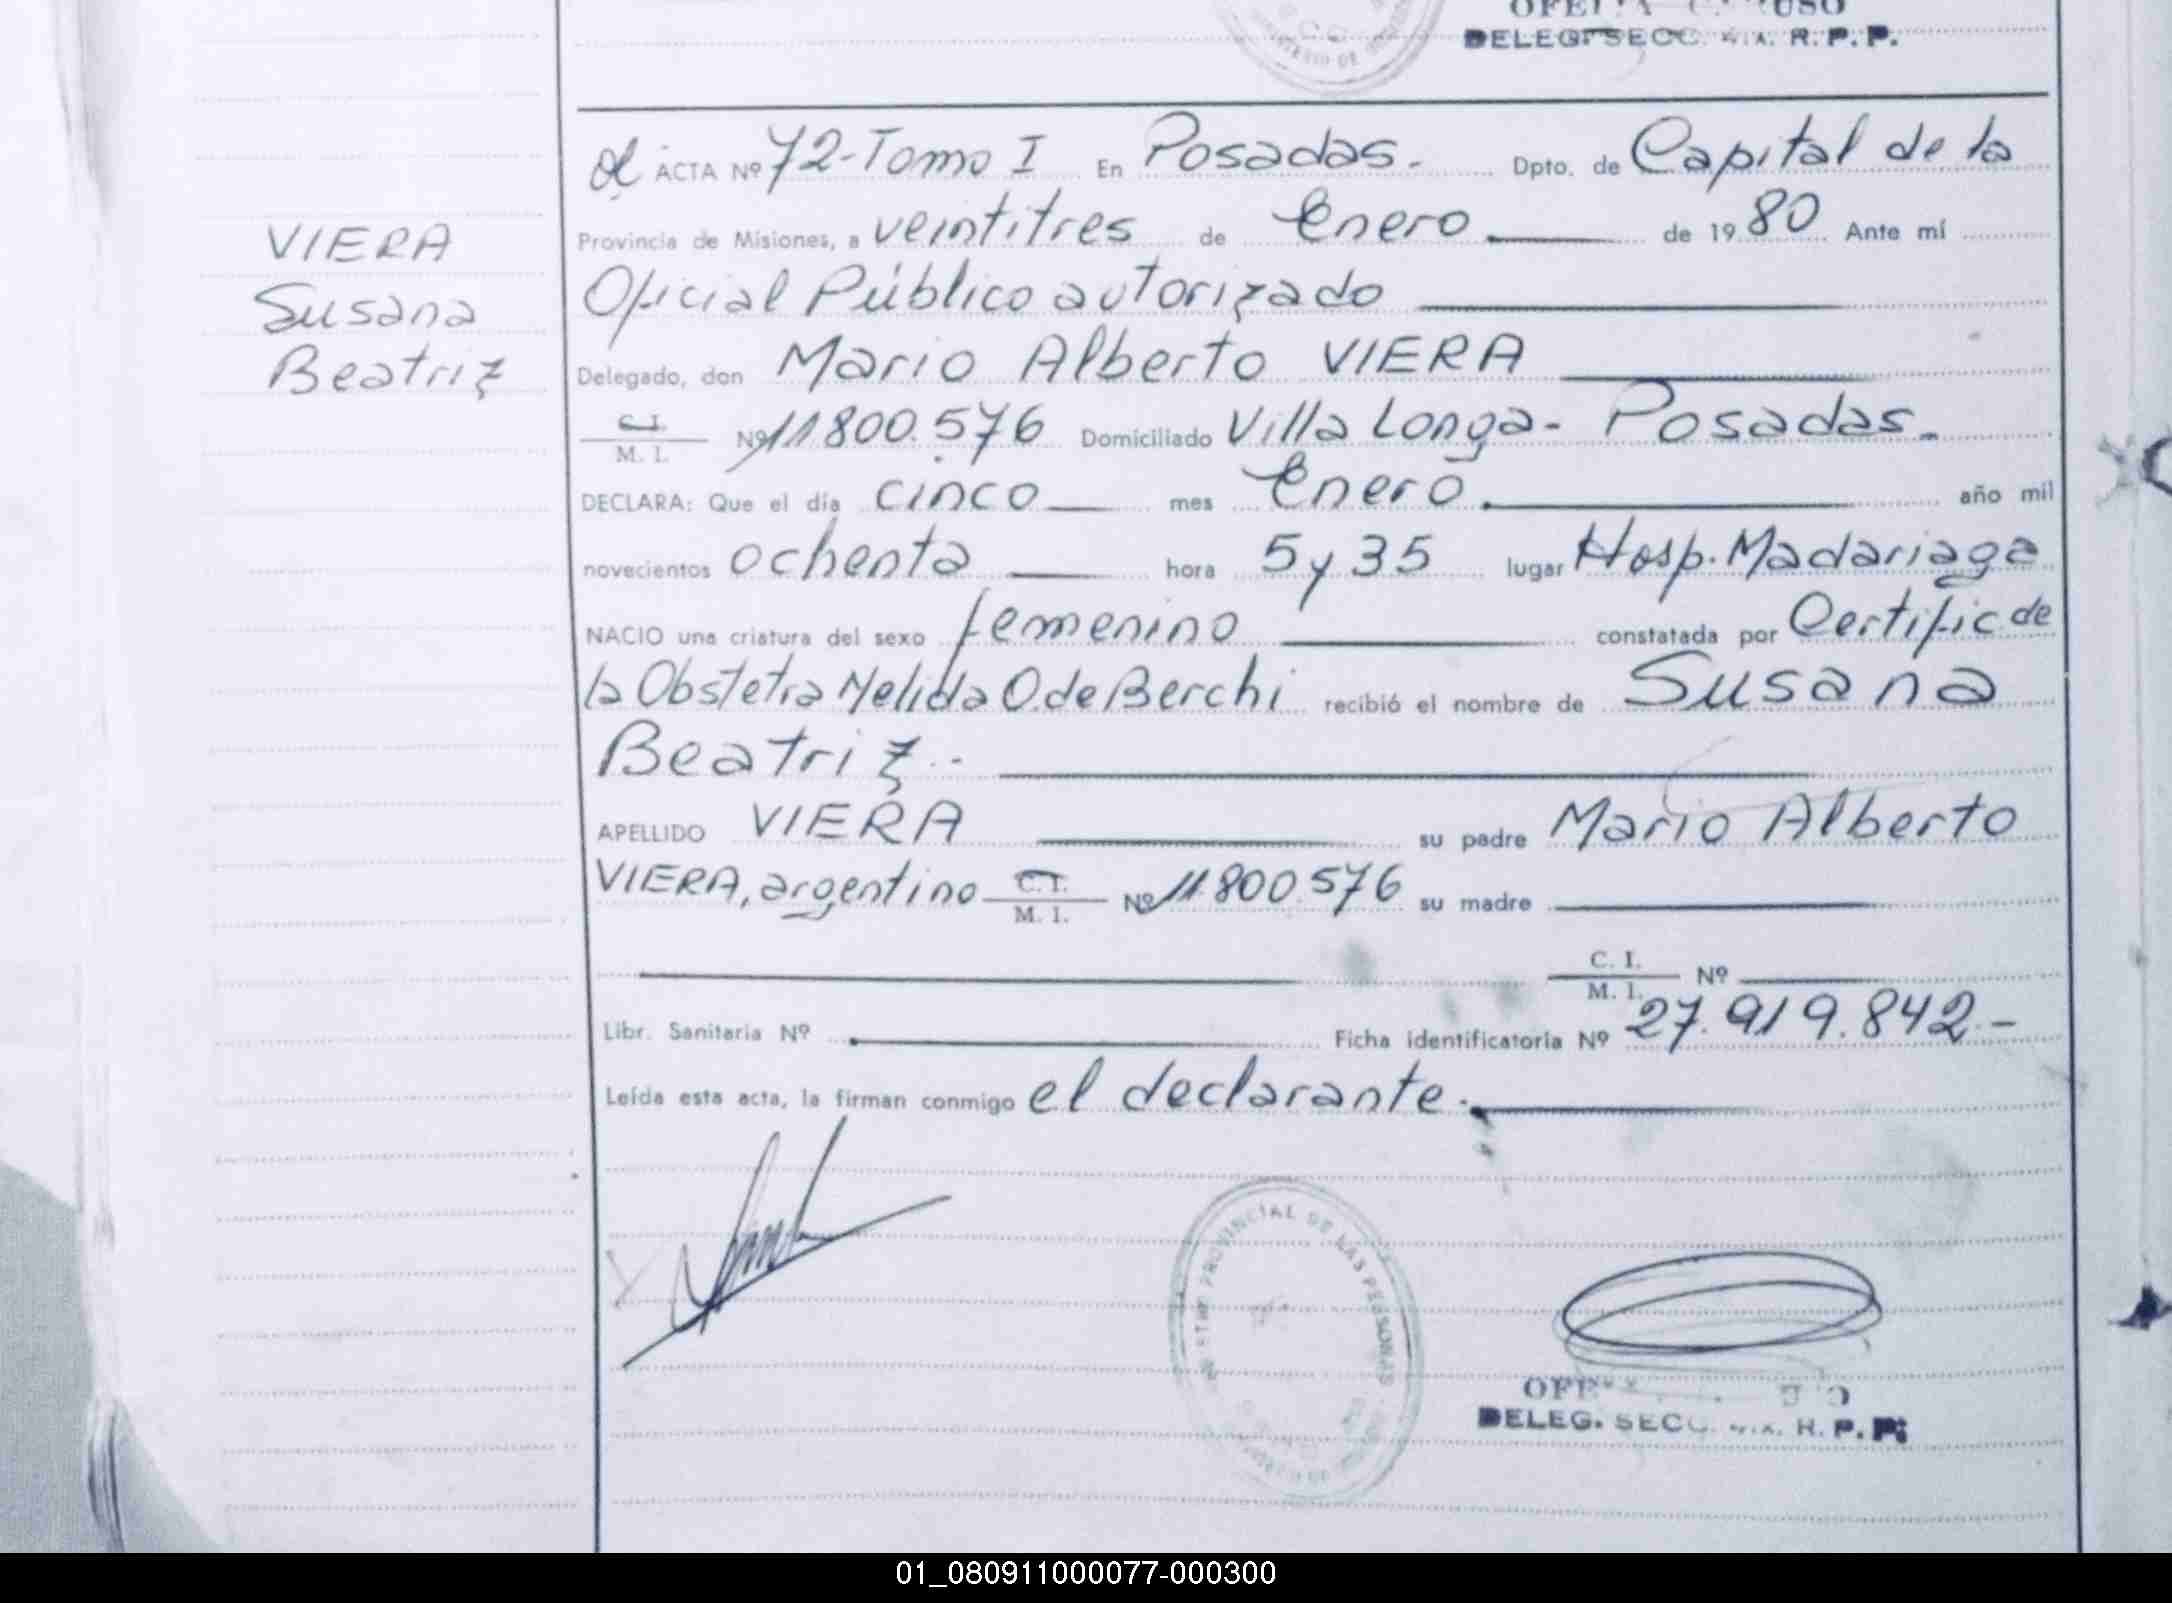 DELEG. SECC. R. P. P.
ACTA Nº 72-Tomo I En Posadas.- Dpto. de Capital de la
Provincia de Misiones, a veintitres de Enero de 1980 Ante mí
Oficial Público autorizado
Delegado, don Mario Alberto VIERA
C. I.
M. I. Nº 11800.576 Domiciliado Villa Longa- Posadas.-
DECLARA: Que el día cinco mes Enero. año mil
novecientos ochenta hora 5 y 35 lugar Hosp. Madariaga
NACIO una criatura del sexo femenino constatada por Certific de
la Obstetra Nelida O. de Berchi recibió el nombre de Susana
Beatriz.-
APELLIDO VIERA su padre Mario Alberto
VIERA, argentino C. I. M. I. Nº 11.800.576 su madre
C. I.
M. I. Nº
Libr. Sanitaria Nº Ficha identificatoria Nº 27.919.842.-
Leída esta acta, la firman conmigo el declarante.
VIERA
Susana
Beatriz
PROVINCIAL DE LAS PERSONAS
DELEG. SECC. R. P. P.
01_080911000077-000300